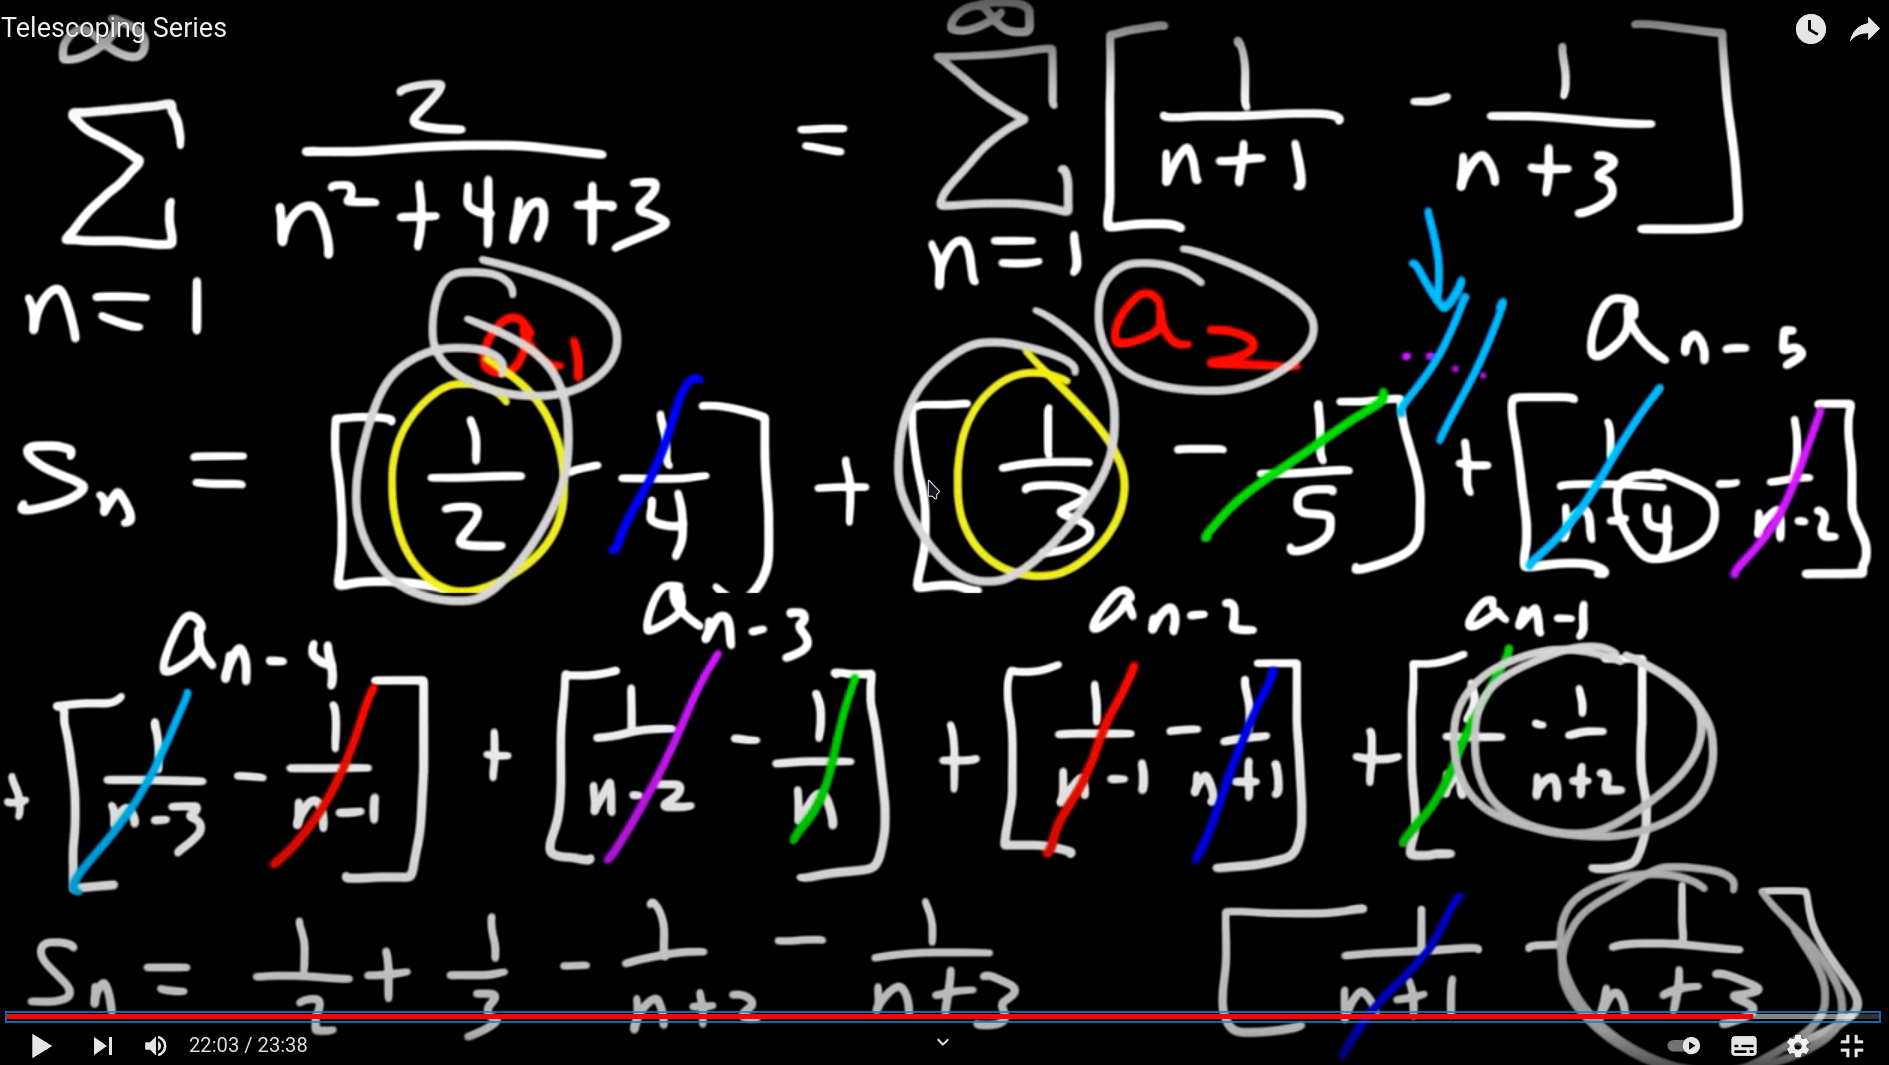 Telescoping Series
∞ ∑ n=1 2/(n²+4n+3) = ∞ ∑ n=1 [1/(n+1) - 1/(n+3)]
a₁ a₂ aₙ₋₅
Sₙ = [1/2 - 1/4] + [1/3 - 1/5] .... + [1/(n-4) - 1/(n-2)]
aₙ₋₄ aₙ₋₃ aₙ₋₂ aₙ₋₁
+ [1/(n-3) - 1/(n-1)] + [1/(n-2) - 1/n] + [1/(n-1) - 1/(n+1)] + [1/n - 1/(n+2)]
Sₙ = 1/2 + 1/3 - 1/(n+2) - 1/(n+3) [1/(n+1) - 1/(n+3)]
22:03 / 23:38